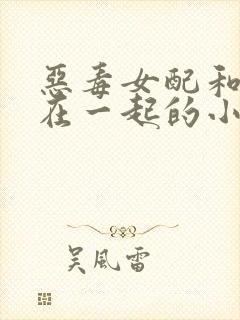 惡毒女配和
在一起的小
吴風雷